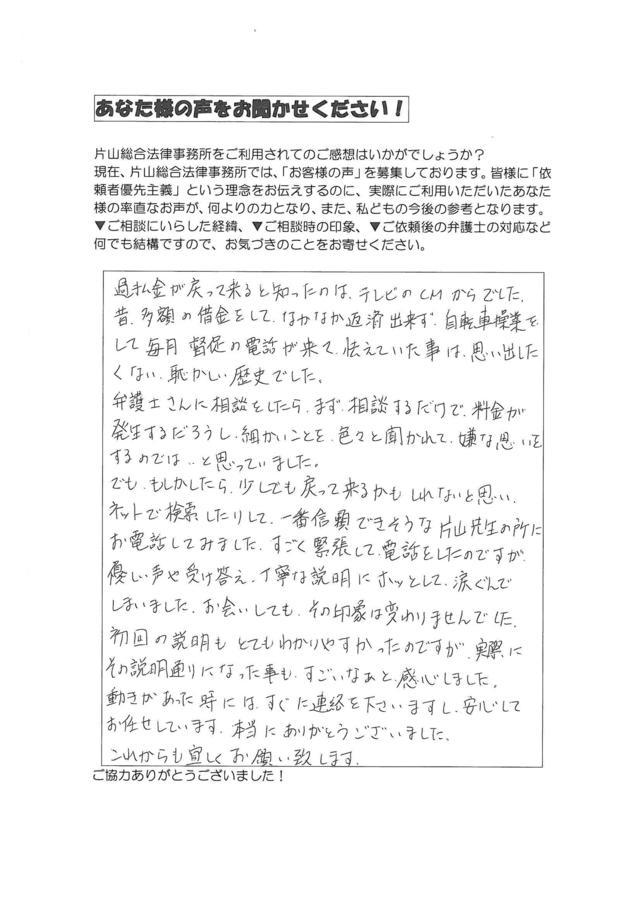 あなた様の声をお聞かせください！
片山総合法律事務所をご利用されてのご感想はいかがでしょうか？
現在、片山総合法律事務所では、「お客様の声」を募集しております。皆様に「依
頼者優先主義」という理念をお伝えするのに、実際にご利用いただいたあなた
様の率直なお声が、何よりの力となり、また、私どもの今後の参考となります。
▼ご相談にいらした経緯、▼ご相談時の印象、▼ご依頼後の弁護士の対応など
何でも結構ですので、お気づきのことをお寄せください。
過払金が戻って来ると知ったのは、テレビのCMからでした。
昔、多額の借金をして、なかなか返済出来ず、自転車操業を
して毎月督促の電話が来て、怯えていた事は、思い出した
くない、恥かしい歴史でした。
弁護士さんに相談をしたら、まず、相談するだけで、料金が
発生するだろうし、細かいことを、色々と聞かれて、嫌な思いを
するのでは..と思っていました。
でも、もしかしたら、少しでも戻って来るかもしれないと思い、
ネットで検索したりして、一番信頼できそうな片山先生の所に
お電話してみました。すごく緊張して、電話をしたのですが、
優しい声や受け答え、丁寧な説明にホッとして、涙ぐんで
しまいました。お会いしても、その印象は変わりませんでした。
初回の説明もとてもわかりやすかったのですが、実際に
その説明通りになった事も、すごいなぁと、感心しました。
動きがあった時には、すぐに連絡を下さいますし、安心して
お任せしています。本当にありがとうございました。
これからも宜しくお願い致します。
ご協力ありがとうございました！